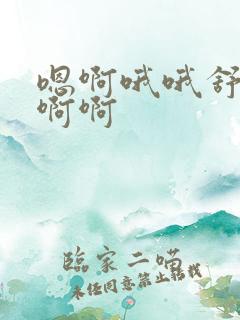 嗯啊哦哦舒
啊啊
临家二喵
未经同意禁止转载